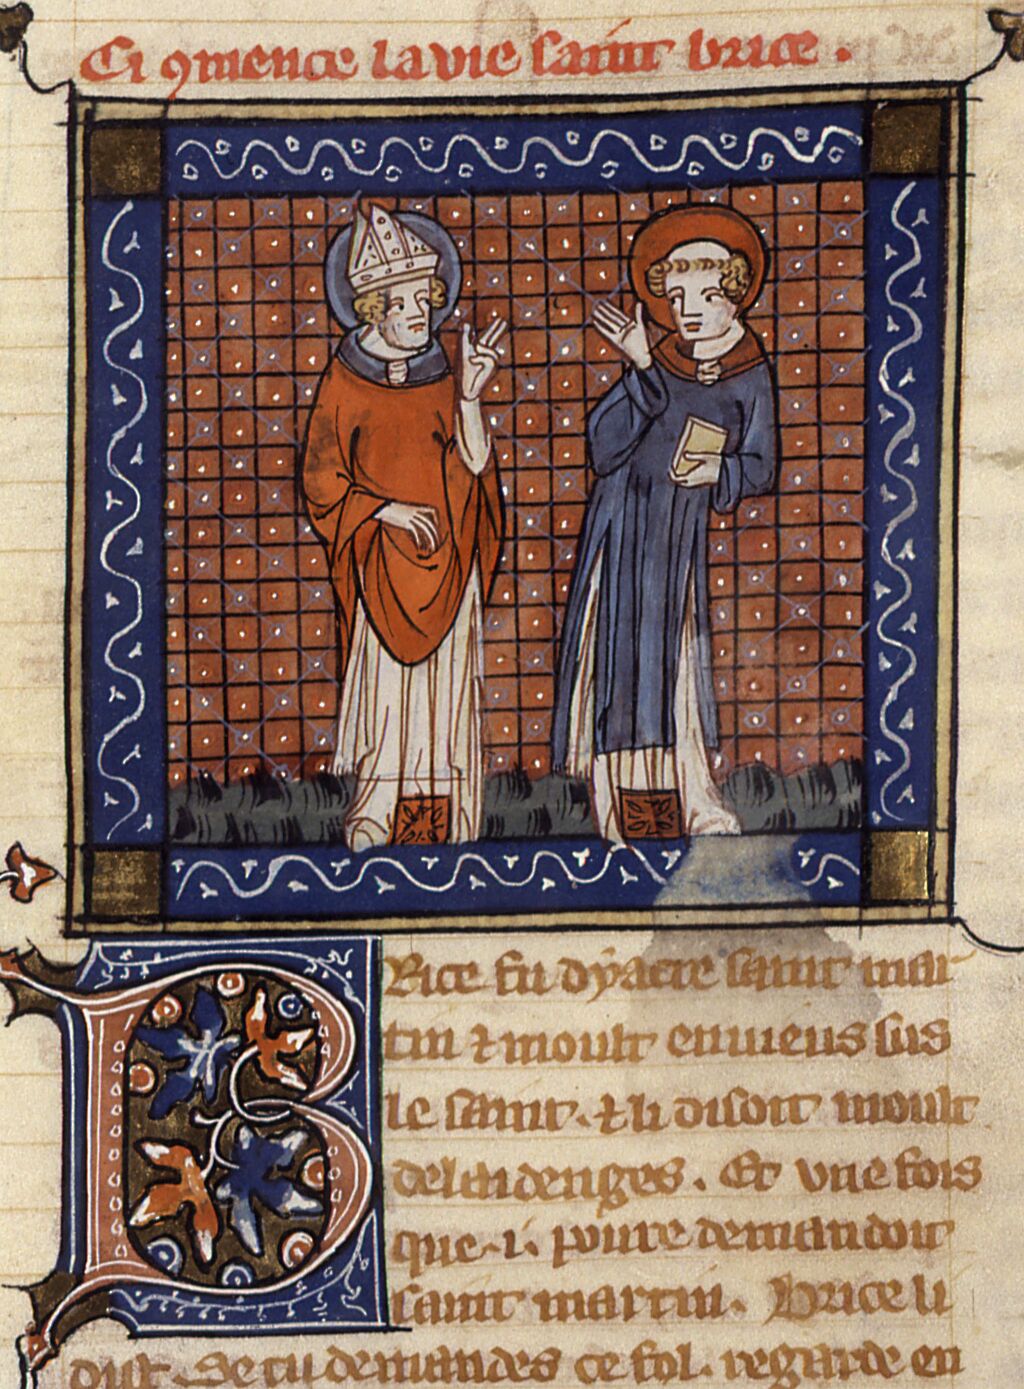 Ci ꝯmence la vie saint brice .
BRice fu dyacre saint mar
tin ⁊ moult enuieus sus
le saint . ⁊ li disoit moult
de laidenges . Et vne fois
que .i. poure demandoit
saint martin . Brice li
dist . Se tu demandes ce fol . regarde en